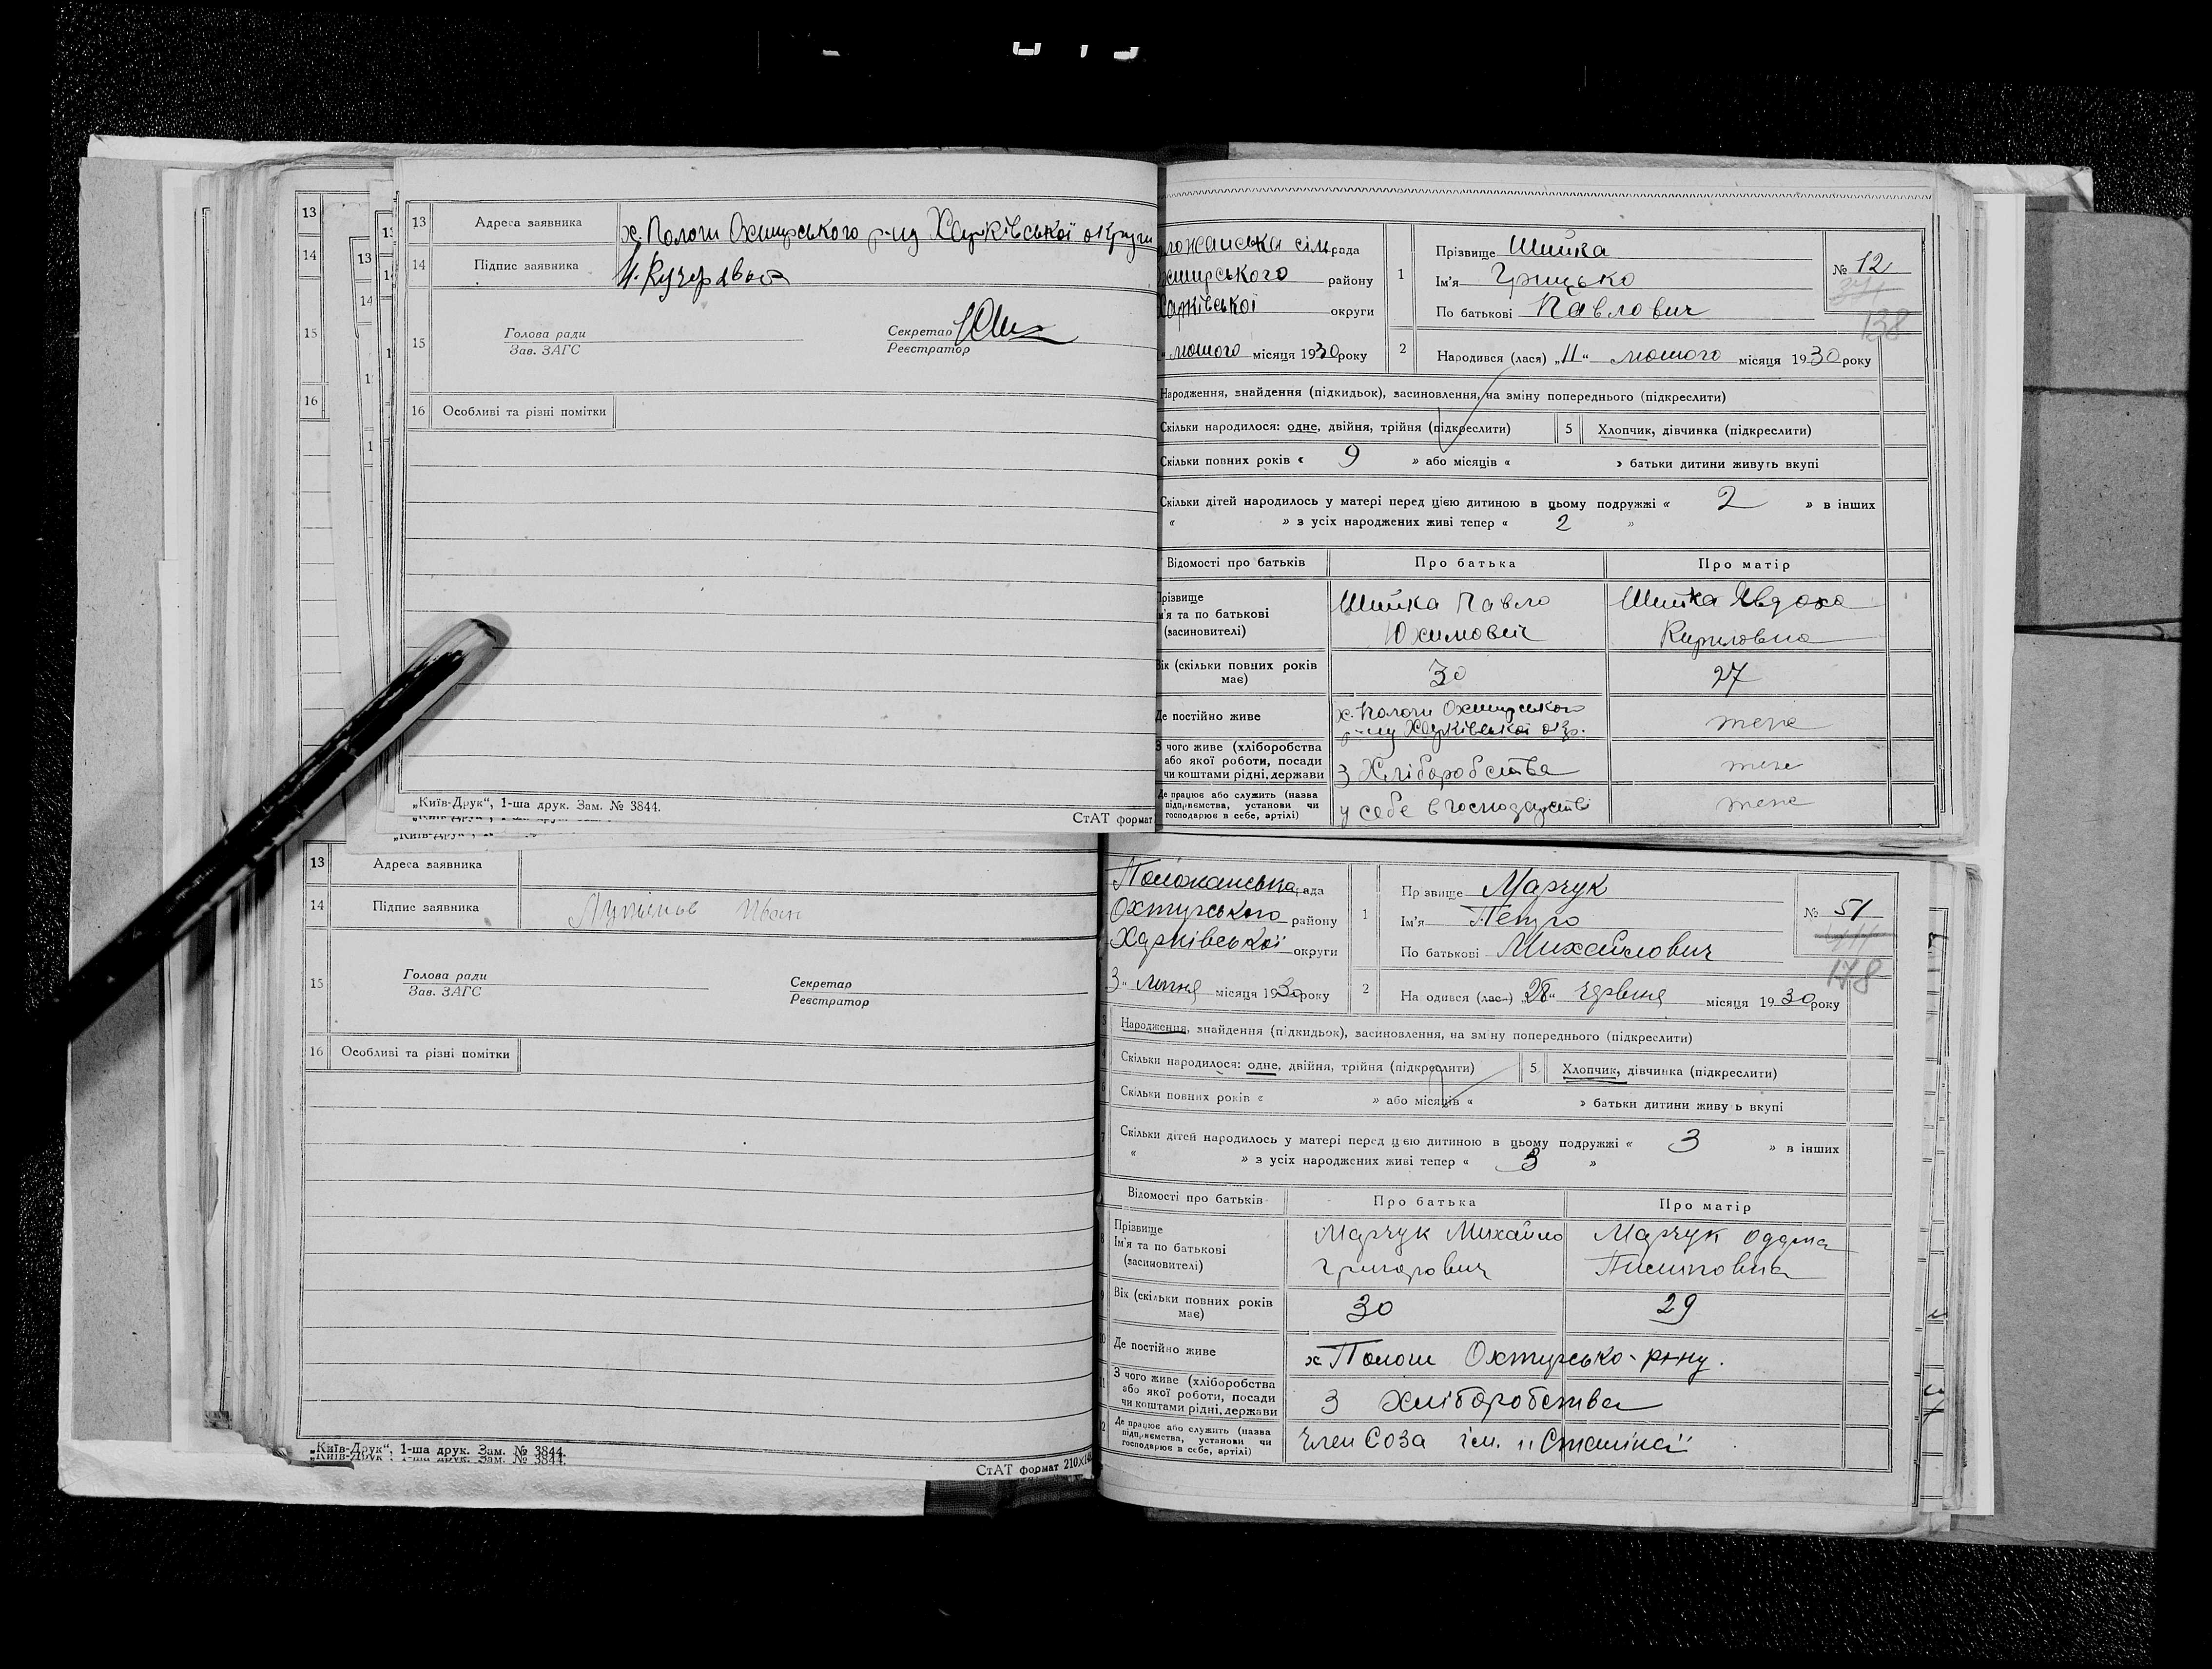 13 Адреса заявника х. Пологи Охтирського р-ну Харківської округи
14 Підпис заявника Кучерявый
15 Голова ради
Зав. ЗАГС
Секретар
Реєстратор
16 Особливі та різні помітки
„Київ-Друк“, 1-ша друк. Зам. № 3844.
СтАТ формат
ложанська сільрада
хтирського району
арківської округи
лютого місяця 1930 року
1 Прізвище Шийка
Ім'я Грицько
По батькові Павлович
№ 12
138
2 Народився (лася) „11“ лютого місяця 1930 року
Народження, знайдення (підкидьок), засиновлення, на зміну попереднього (підкреслити)
Скільки народилося: одне, двійня, трійня (підкреслити) 5 Хлопчик, дівчинка (підкреслити)
Скільки повних років « 9 » або місяців « » батьки дитини живуть вкупі
Скільки дітей народилось у матері перед цією дитиною в цьому подружжі « 2 » в інших
« » з усіх народжених живі тепер « 2 »
Відомості про батьків Про батька Про матір
Прізвище
м'я та по батькові
(засиновителі)
Шийка Павло
Юхимович
Шийка Явдоха
Кириловна
Вік (скільки повних років
має) 30 27
Де постійно живе х. Пологи Охтирського
р-ну Харківської окр.
теж
З чого живе (хліборобства
або якої роботи, посади
чи коштами рідні, держави
З Хліборобства
теж
Де працює або служить (назва
підприємства, установи чи
господарює в себе, артілі)
у себе в господарстві
теж
13 Адреса заявника
14 Підпис заявника Іван
15 Голова ради
Зав. ЗАГС
Секретар
Реєстратор
16 Особливі та різні помітки
„Київ-Друк“, 1-ша друк. Зам. № 3844.
СтАТ формат 210×1
Положанська рада
Охтирського району
Харківської округи
3“ липня місяця 1930 року
1 Прізвище Марчук
Ім'я Петро
По батькові Михайлович
№ 51
178
2 На одився (лас) „28“ червня місяця 1930 року
Народження, знайдення (підкидьок), засиновлення, на зміну попереднього (підкреслити)
Скільки народилося: одне, двійня, трійня (підкреслити) 5 Хлопчик, дівчинка (підкреслити)
Скільки повних років « » або місяців « » батьки дитини живу ь вкупі
Скільки дітей народилось у матері перед цією дитиною в цьому подружжі « 3 » в інших
« » з усіх народжених живі тепер « 3 »
Відомості про батьків Про батька Про матір
8 Прізвище
Ім'я та по батькові
(засиновителі)
Марчук Михайло
Григорович
Марчук Оддрка
9 Вік (скільки повних років
має) 30 29
Де постійно живе х Пологи Охтирсько-р-ну.
З чого живе (хліборобства
або якої роботи, посади
чи коштами рідні, держави
З хліборобства
Де працює або служить (назва
підприємства, установи чи
господарює в себе, артілі)
Член Соза ім. „Сталіна“